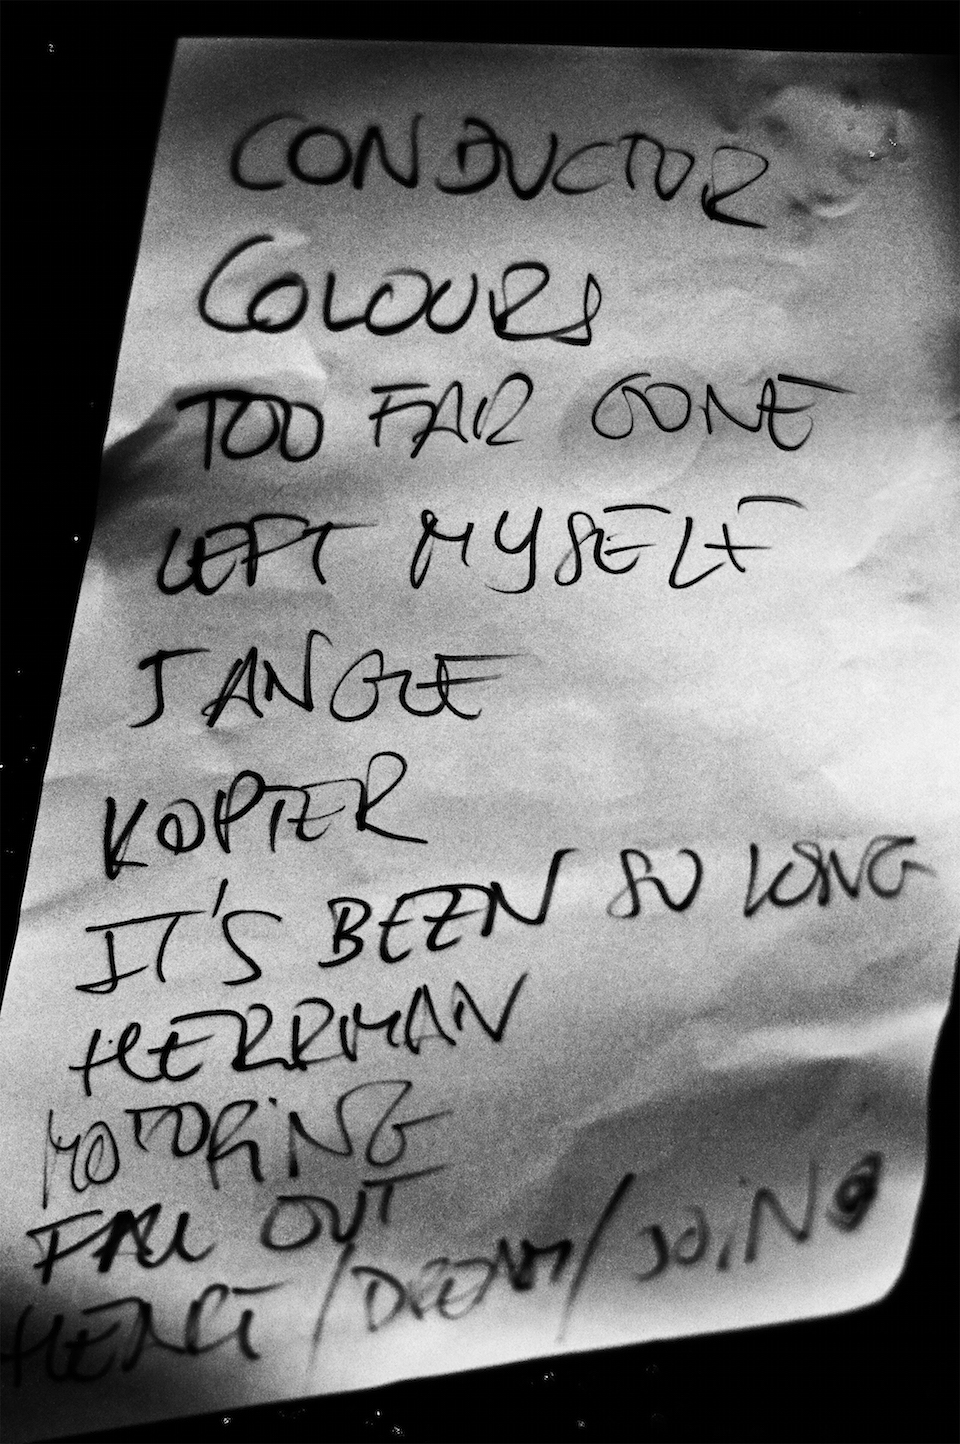 CONDUCTOR
COLOURS
TOO FAR GONE
LEFT MYSELF
JANGLE
KOPTER
IT'S BEEN SO LONG
HERRMAN
MOTORiNG
FALL OUT
HEART / DREAM /